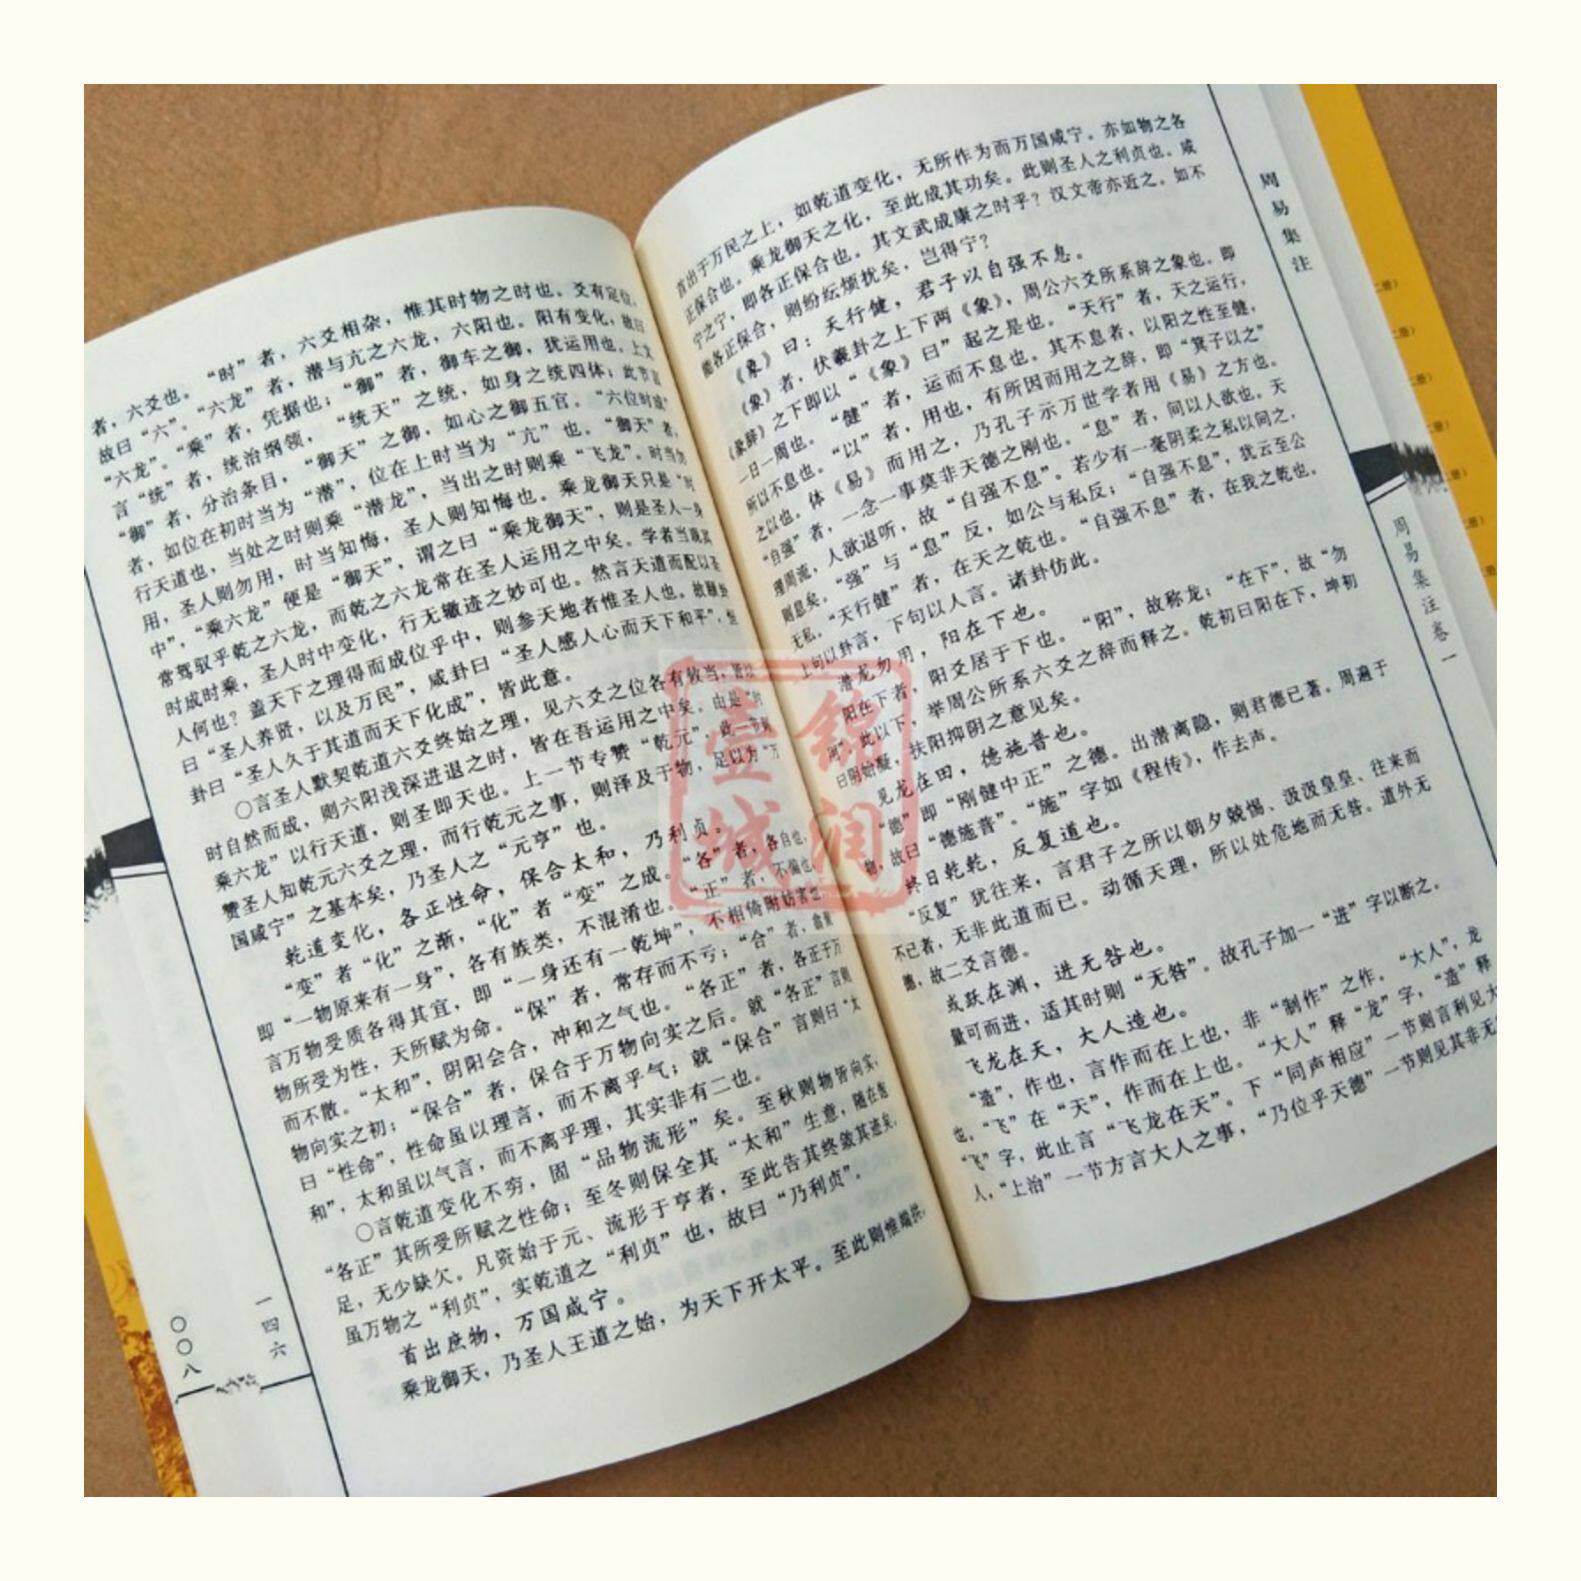 者，六爻也。“时”者，六爻相杂，惟其时物之时也。爻有定位，
故曰“六”。“六龙”者，潜与亢之六龙，六阳也。阳有变化，故曰
“六龙”。“乘”者，凭据也；“御”者，御车之御，犹运用也。上文
言“统”者，统治纲领，“统天”之统，如身之统四体；此节言
“御”者，分治条目，“御天”之御，如心之御五官。“六位时成”
者，如位在初时当为“潜”，位在上时当为“亢”也。“御天”者，
行天道也，当处之时则乘“潜龙”，当出之时则乘“飞龙”。时当勿
用，圣人则勿用，时当知悔，圣人则知悔也。乘龙御天只是“时
中”，“乘六龙”便是“御天”，谓之曰“乘龙御天”，则是圣人一身
常驾驭乎乾之六龙，而乾之六龙常在圣人运用之中矣。学者当观其
时成时乘，圣人时中变化，行无辙迹之妙可也。然言天道而配以圣
人何也？盖天下之理得而成位乎中，则参天地者惟圣人也。故颐卦
曰“圣人养贤，以及万民”，咸卦曰“圣人感人心而天下和平”，恒
卦曰“圣人久于其道而天下化成”，皆此意。
〇言圣人默契乾道六爻终始之理，见六爻之位各有攸当，皆以
时自然而成，则六阳浅深进退之时，皆在吾运用之中矣。由是“时
乘六龙”以行天道，则圣即天也。上一节专赞“乾元”，此一节则
赞圣人知乾元六爻之理，而行乾元之事，则泽及于物，足以为“万
国咸宁”之基本矣，乃圣人之“元亨”也。
乾道变化，各正性命，保合太和，乃利贞。
“变”者“化”之渐，“化”者“变”之成。“各”者，各自也，
即“一物原来有一身”，各有族类，不混淆也。“正”者，不偏也，
言万物受质各得其宜，即“一身还有一乾坤”，不相倚附妨害也。
物所受为性，天所赋为命。“保”者，常存而不亏；“合”者，翕聚
而不散。“太和”，阴阳会合，冲和之气也。“各正”者，各正于万
物向实之初；“保合”者，保合于万物向实之后。就“各正”言则
曰“性命”，性命虽以理言，而不离乎气；就“保合”言则曰“太
和”，太和虽以气言，而不离乎理，其实非有二也。
〇言乾道变化不穷，固“品物流形”矣。至秋则物皆向实，
“各正”其所受所赋之性命；至冬则保全其“太和”生意，随在饱
足，无少缺欠。凡资始于元、流形于亨者，至此告其终敛其迹矣，
虽万物之“利贞”，实乾道之“利贞”也，故曰“乃利贞”。
首出庶物，万国咸宁。
乘龙御天，乃圣人王道之始，为天下开太平。至此则惟端拱，
一四六
〇〇八
首出于万民之上，如乾道变化，无所作为而万国咸宁。亦如物之各
正保合也。乘龙御天之化，至此成其功矣。此则圣人之利贞也。咸
宁之宁，即各正保合也，其文武成康之时乎？汉文帝亦近之。如不
能各正保合，则纷纭烦扰矣，岂得宁？
《象》曰：天行健，君子以自强不息。
《象》者，伏羲卦之上下两《象》，周公六爻所系辞之象也。即
《彖辞》之下即以“《象》曰”起之是也。“天行”者，天之运行，
一日一周也。“健”者，运而不息也。其不息者，以阳之性至健，
所以不息也。“以”者，用也，有所因而用之之辞，即“箕子以之”
之以也。体《易》而用之，乃孔子示万世学者用《易》之方也。
“自强”者，一念一事莫非天德之刚也。“息”者，间以人欲也。天
理周流，人欲退听，故“自强不息”。若少有一毫阴柔之私以间之，
则息矣。“强”与“息”反，如公与私反；“自强不息”，犹云至公
无私。“天行健”者，在天之乾也。“自强不息”者，在我之乾也。
上句以卦言，下句以人言。诸卦仿此。
潜龙勿用，阳在下也。
阳在下者，阳爻居于下也。“阳”，故称龙；“在下”，故“勿
用”，此以下，举周公所系六爻之辞而释之。乾初曰阳在下，坤初
曰阴始凝，扶阳抑阴之意见矣。
见龙在田，德施普也。
“德”即“刚健中正”之德。出潜离隐，则君德已著。周遍于
物，故曰“德施普”。“施”字如《程传》，作去声。
终日乾乾，反复道也。
“反复”犹往来，言君子之所以朝夕兢惕、汲汲皇皇、往来而
不已者，无非此道而已。动循天理，所以处危地而无咎。道外无
德，故二爻言德。
或跃在渊，进无咎也。
量可而进，适其时则“无咎”。故孔子加一“进”字以断之。
飞龙在天，大人造也。
“造”，作也，言作而在上也，非“制作”之作。“大人”，龙
也，“飞”在“天”，作而在上也。“大人”释“龙”字，“造”释
“飞”字，此止言“飞龙在天”。下“同声相应”一节则言利见大
人，“上治”一节方言大人之事，“乃位乎天德”一节则见其非无
周易集注
周易集注卷一
锦润
壹城